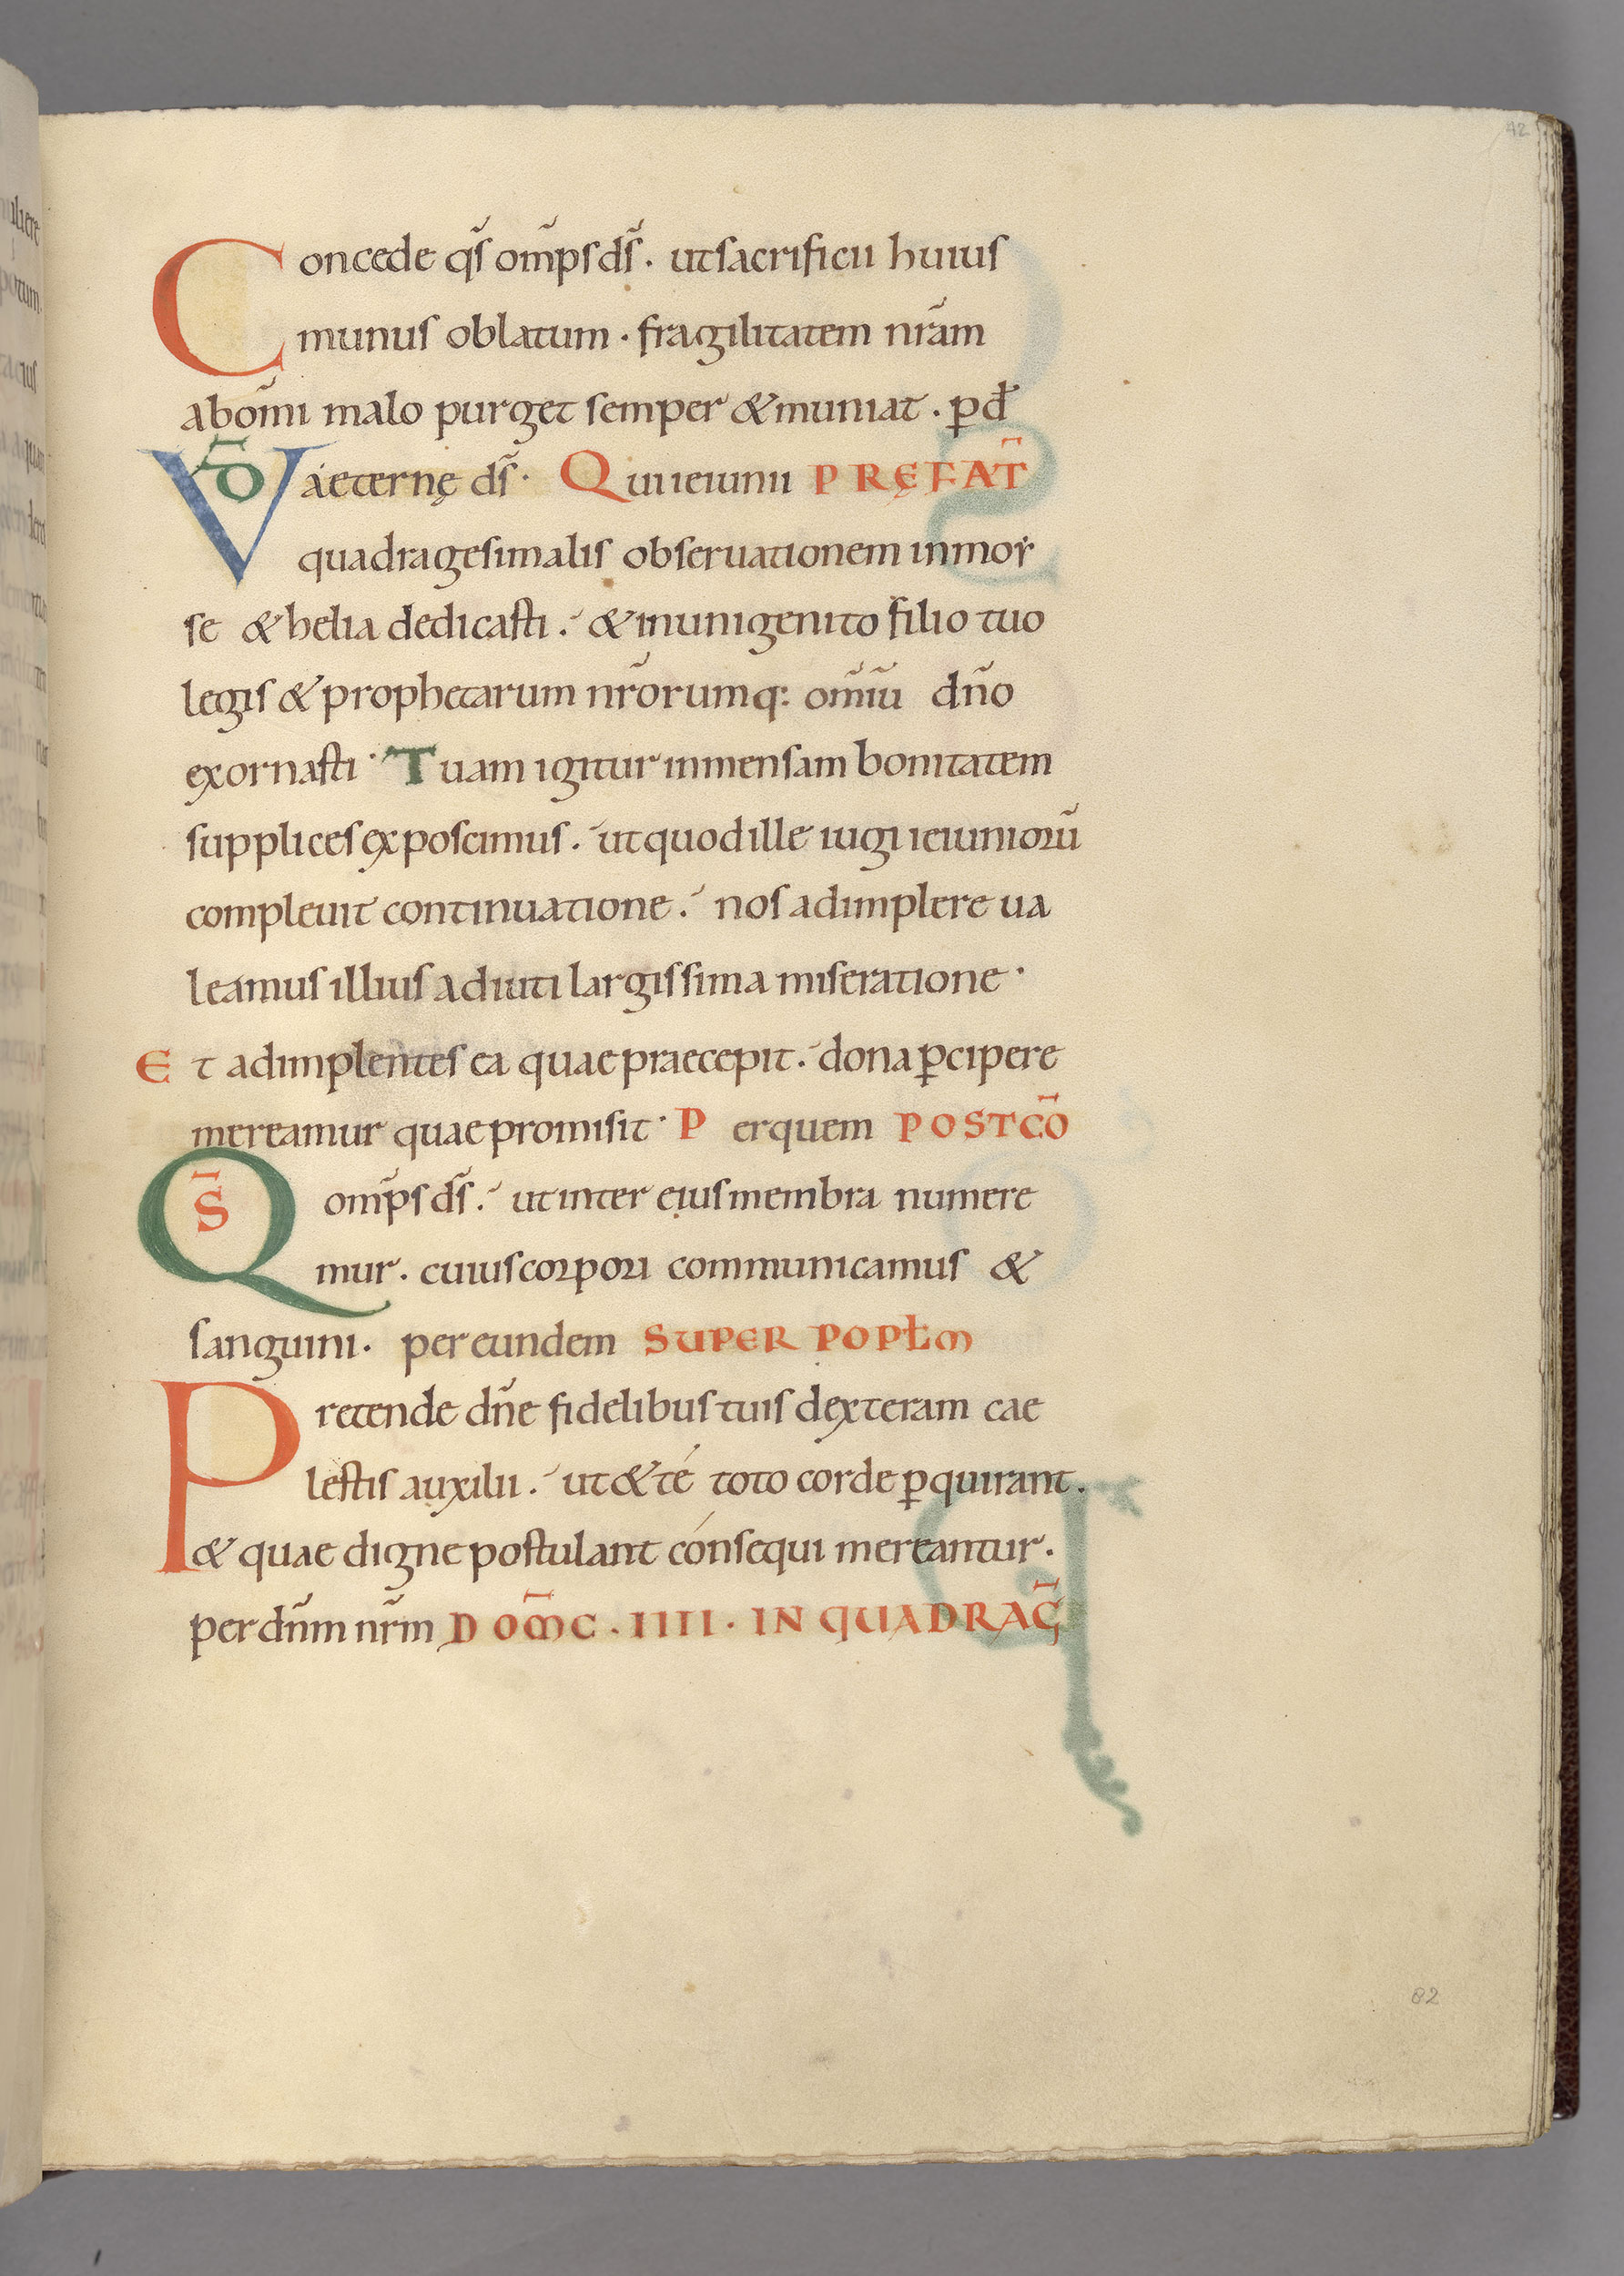 42
Concede q̃s om̃ps d̃s. ut sacrificii huius
munus oblatum. fragilitatem nr̃am
ab om̃i malo purget semper & muniat. p̱ d̃
VD̃ aeternę d̃s. Qui ieiunii PRĘFAT̃
quadragesimalis obseruationem in moy
se & helia dedicasti. & in unigenito filio tuo
legis & prophetarum nr̃orumq: om̃iũ dño
exornasti. Tuam igitur inmensam bonitatem
supplices exposcimus. ut quod ille iugi ieiuniorũ
compleuit continuatione. nos adimplere ua
leamus illius adiuti largissima miseratione.
Et adimplentes ea quae praecepit. dona p̱cipere
mereamur quae promisit. Per quem POSTCÕ
QS̃ om̃ps d̃s. ut inter eius membra numere
mur. cuius corpori communicamus &
sanguini. per eundem SUPER POPŁM
Pretende dñe fidelibus tuis dexteram cae
lestis auxilii. ut & té toto corde p̱quirant.
& quae digne postulant cónsequi mereantur.
per dñm nr̃m DOM̃C. IIII. IN QUADRAG̃
82